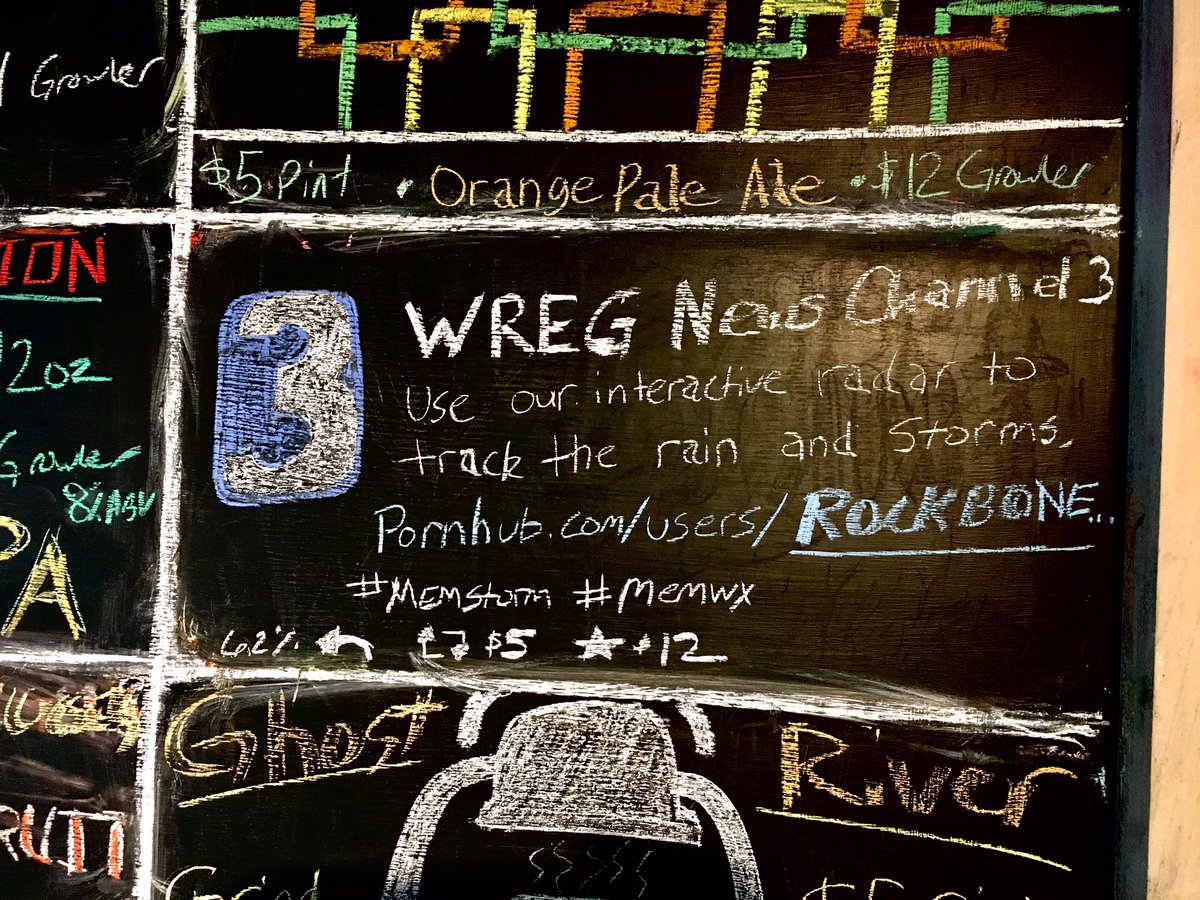 Growler
$5 Pint • Orange Pale Ale • $12 Growler
ION
12oz
Growler
8% ABV
PA
3
WREG News Channel 3
Use our interactive radar to
track the rain and Storms,
Pornhub.com/users/ROCKBONE...
#Memstorm #Memwx
6.2% $5 12
Ghost River
RUTT
Grind